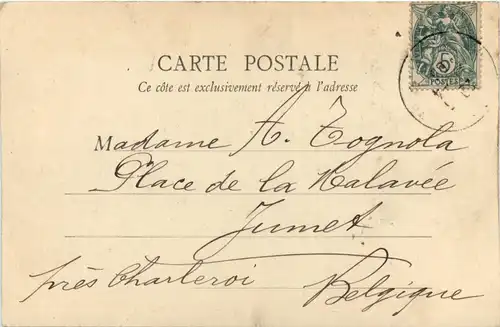 CARTE POSTALE
Ce côte est exclusivement réservé à l'adresse
Madame A. Tognola
Place de la Kalavée
Jumet
près Charleroi
Belgique
5
POSTES